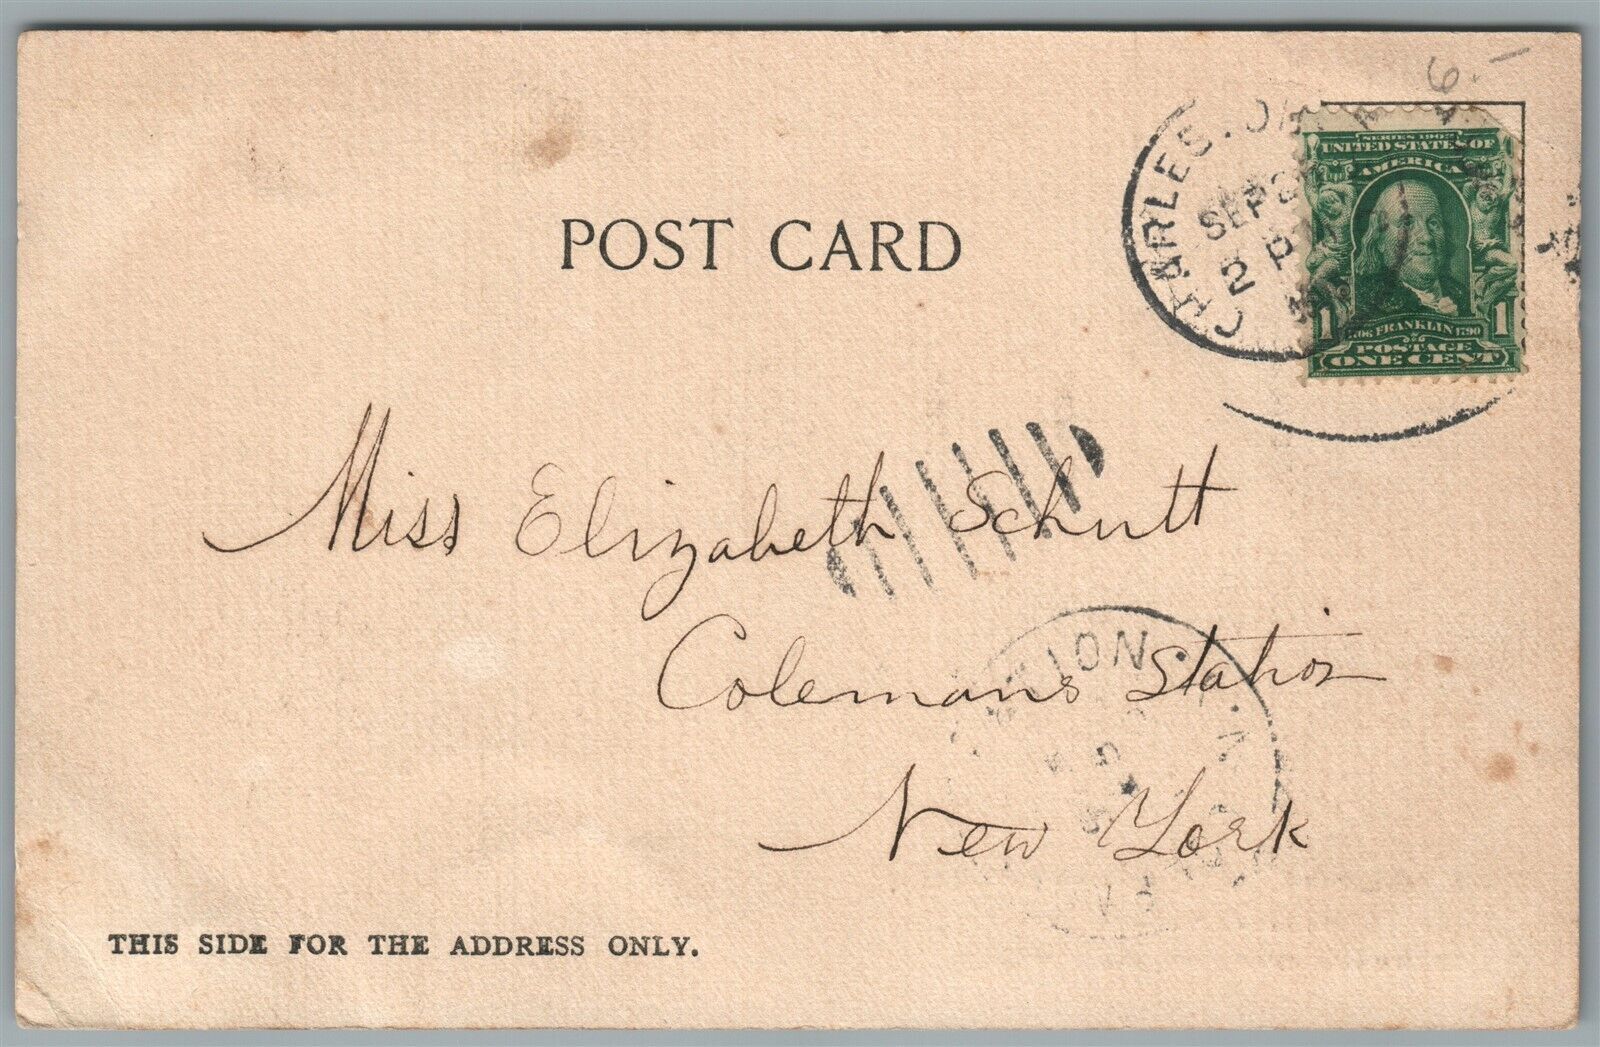 6.-
SERIES 1902
UNITED STATES OF
AMERICA
1 FRANKLIN 1790 1
POSTAGE
ONE CENT
SEP
2 P
POST CARD
Miss Elizabeth Schutt
Colemans Station
New York
THIS SIDE FOR THE ADDRESS ONLY.